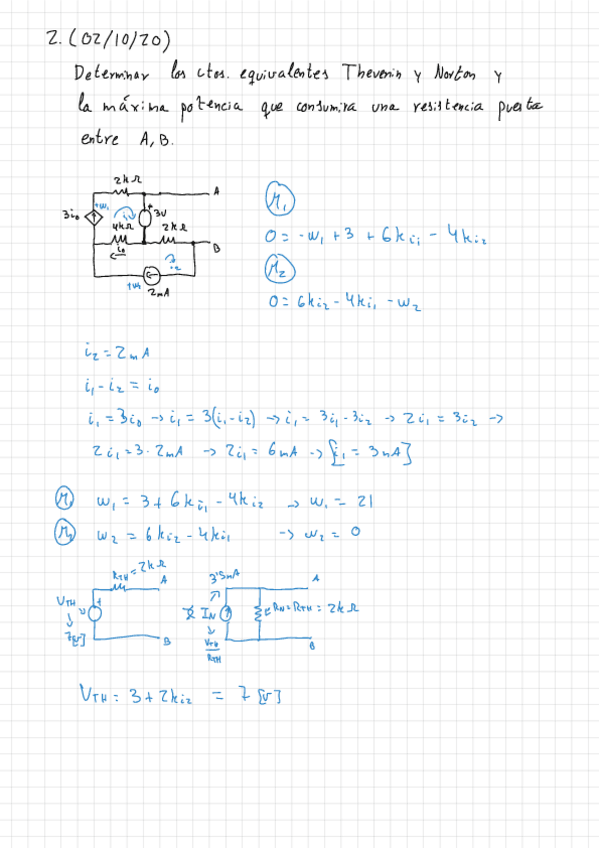 2. (02/10/20)
Determinar los ctos. equivalentes Thevenin y Norton y
la máxima potencia que consumira una resistencia puesta
entre A, B.
2kΩ
A
+w₁
3i₀
i₁
+
3V
4kΩ
2kΩ
i₀
B
i₂
+w₂
2mA
M₁
0 = -w₁ + 3 + 6k i₁ - 4k i₂
M₂
0 = 6k i₂ - 4k i₁ - w₂
i₂ = 2mA
i₁ - i₂ = i₀
i₁ = 3i₀ → i₁ = 3(i₁-i₂) → i₁ = 3i₁ - 3i₂ → 2i₁ = 3i₂ →
2i₁ = 3·2mA → 2i₁ = 6mA → [i₁ = 3mA]
M₁ w₁ = 3 + 6k i₁ - 4k i₂ → w₁ = 21
M₂ w₂ = 6k i₂ - 4k i₁ → w₂ = 0
R_TH = 2kΩ
A
V_TH
+
7[V]
B
3'5mA
A
I_N
R_N = R_TH = 2kΩ
V_TH
R_TH
B
V_TH = 3 + 2k i₂ = 7 [V]